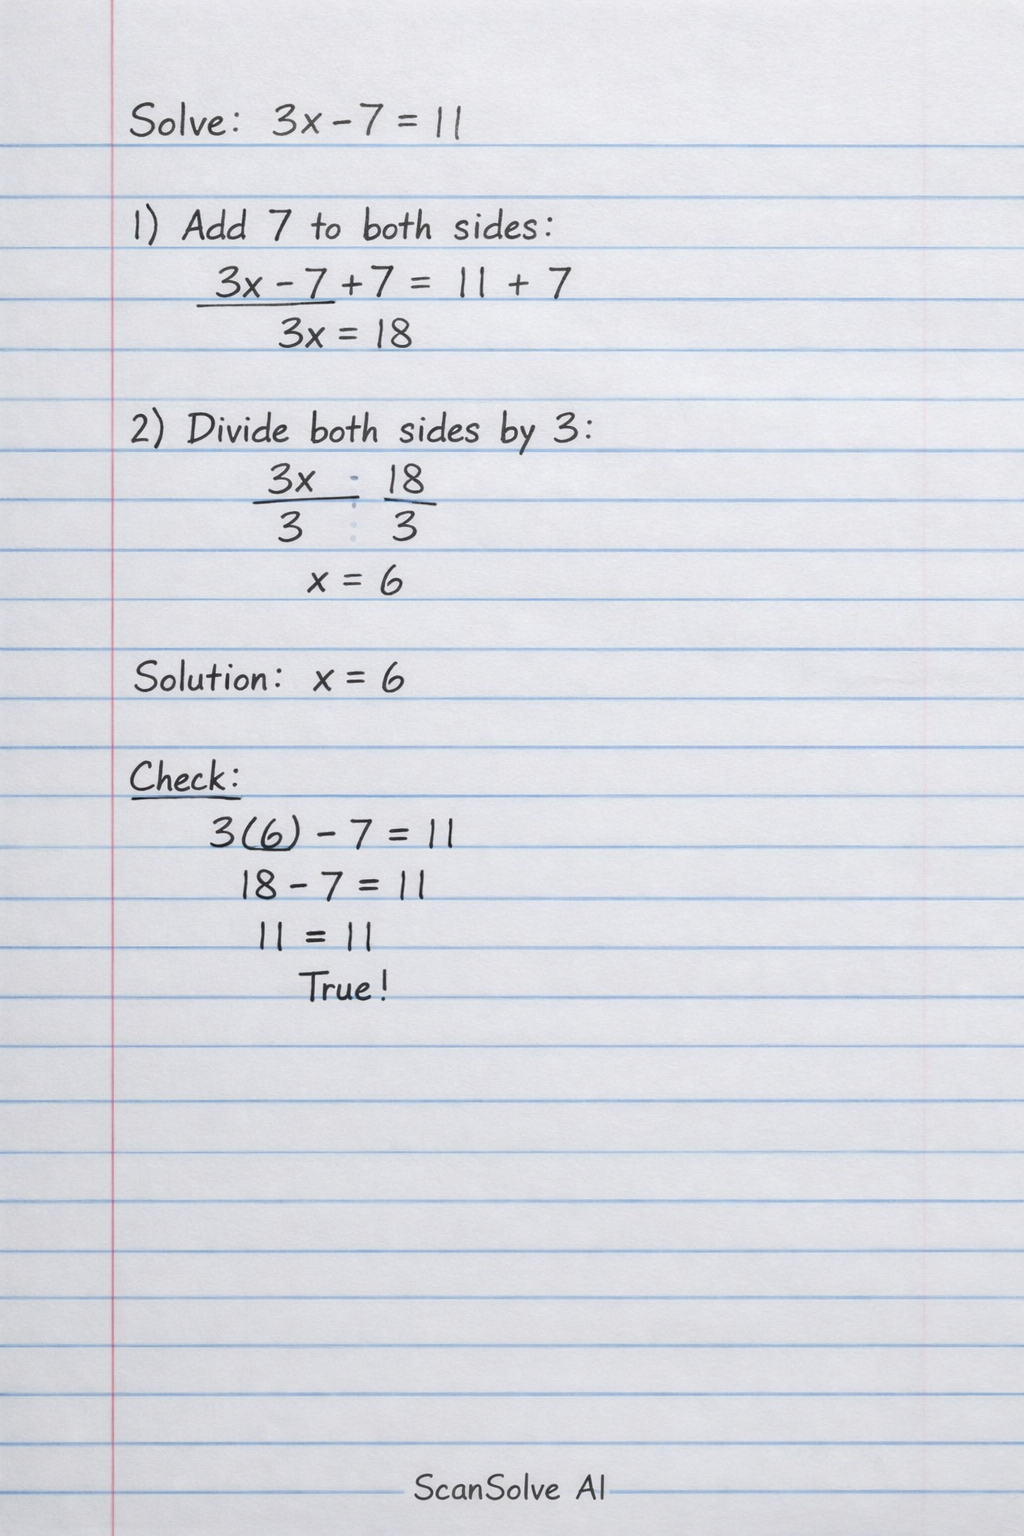 Solve: 3x - 7 = 11
1) Add 7 to both sides:
3x - 7 + 7 = 11 + 7
3x = 18
2) Divide both sides by 3:
3x 18
3 3
x = 6
Solution: x = 6
Check:
3(6) - 7 = 11
18 - 7 = 11
11 = 11
True!
ScanSolve AI